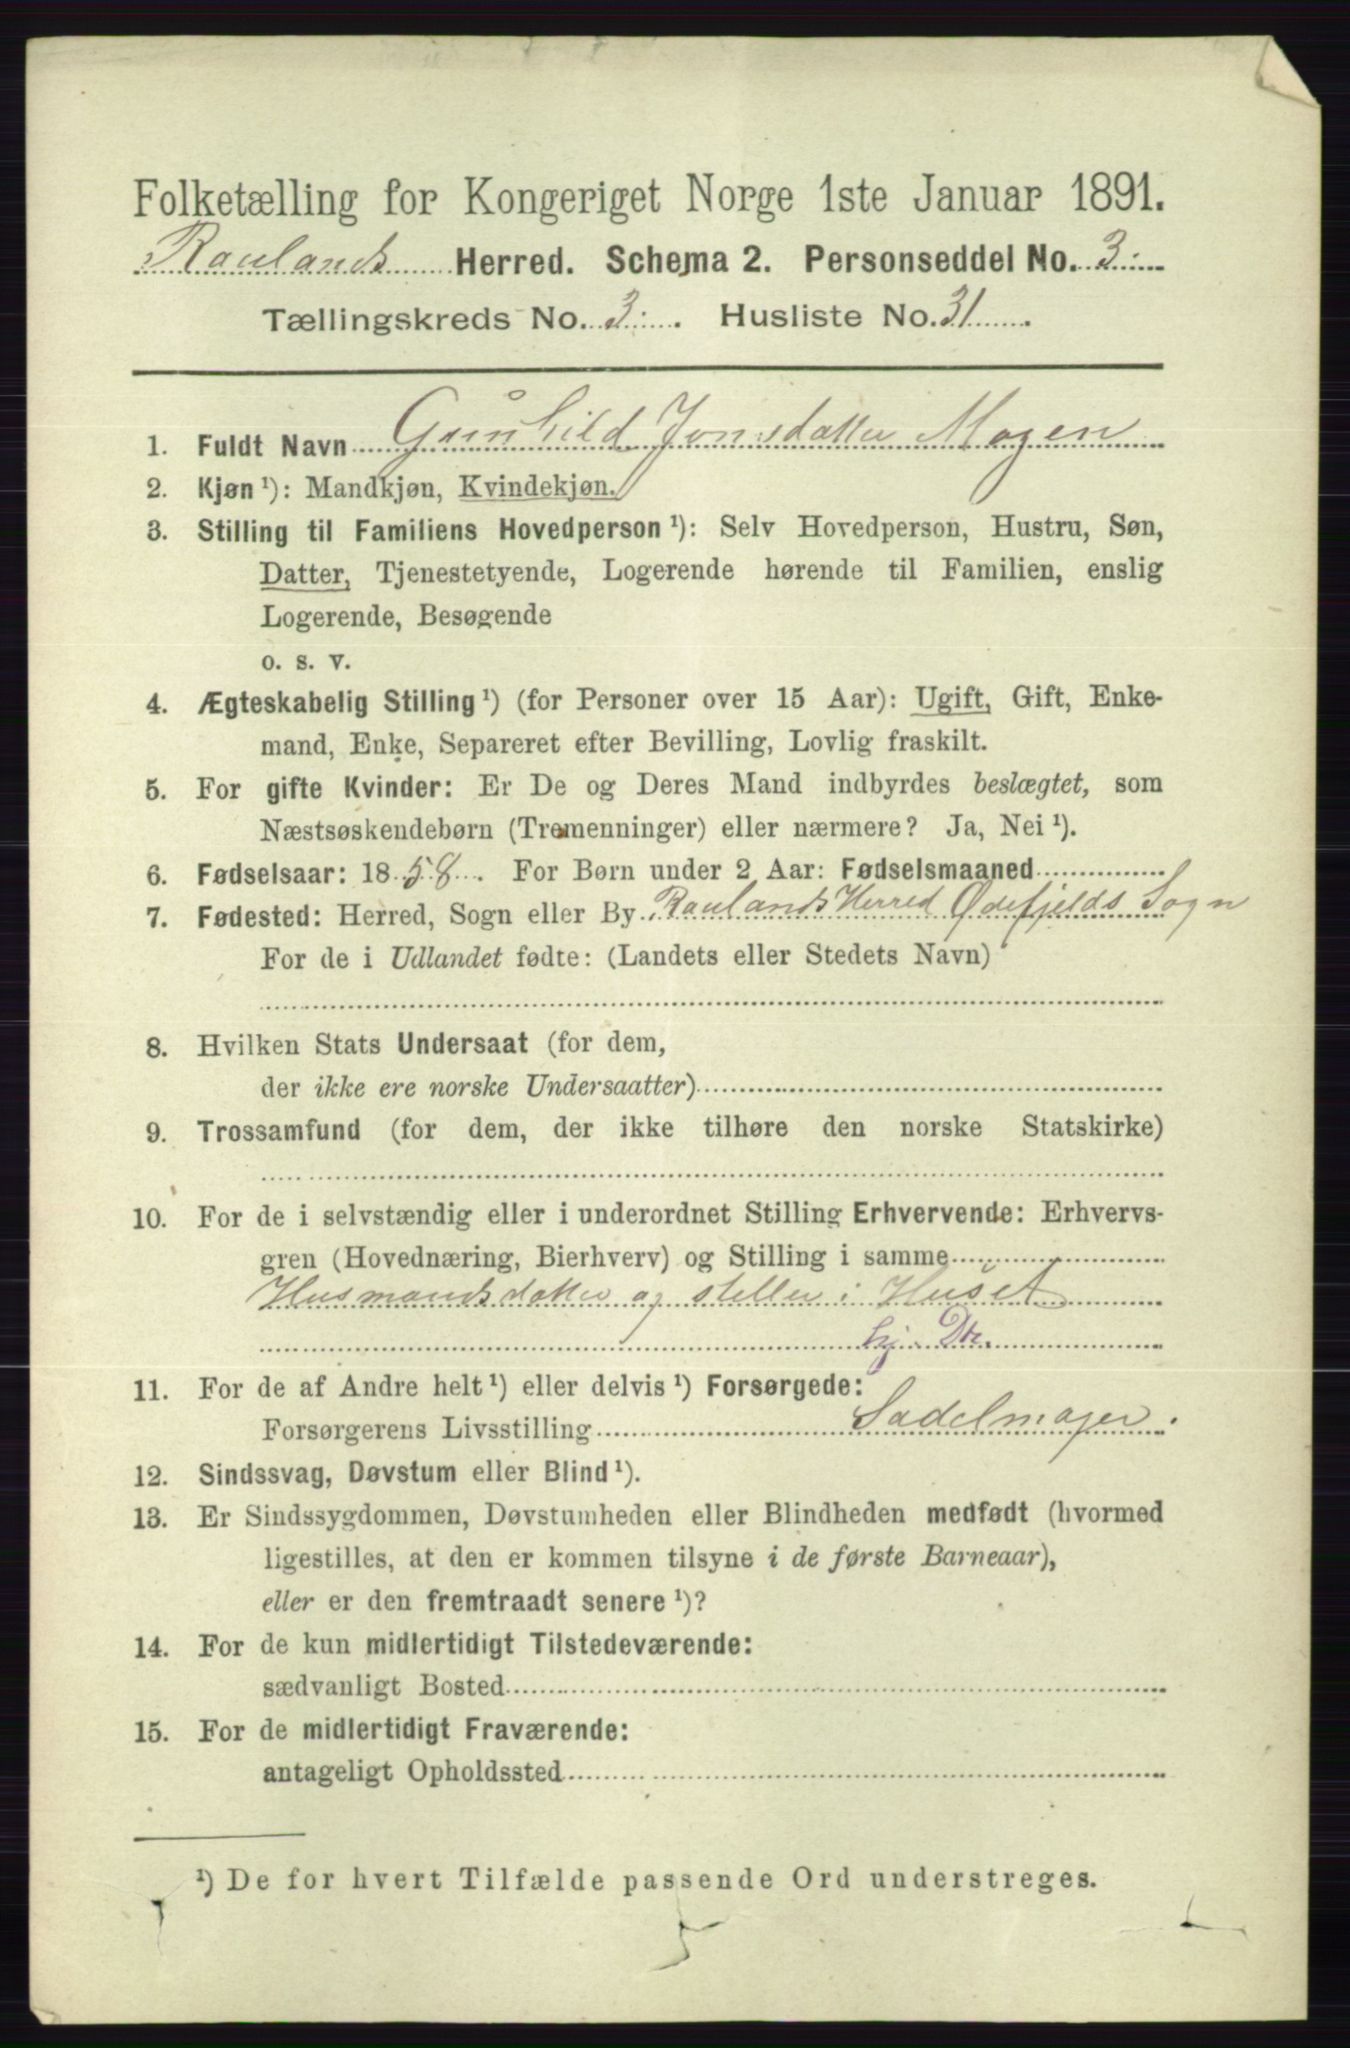 Folketælling for Kongeriget Norge 1ste Januar 1891.
Raulands Herred. Schema 2. Personseddel No. 3
Tællingskreds No. 3. Husliste No. 31.
1. Fuldt Navn Gunhild Jonsdatter Mogen
2. Kjøn ¹): Mandkjøn, Kvindekjøn.
3. Stilling til Familiens Hovedperson ¹): Selv Hovedperson, Hustru, Søn,
Datter, Tjenestetyende, Logerende hørende til Familien, enslig
Logerende, Besøgende
o. s. v.
4. Ægteskabelig Stilling ¹) (for Personer over 15 Aar): Ugift, Gift, Enke-
mand, Enke, Separeret efter Bevilling, Lovlig fraskilt.
5. For gifte Kvinder: Er De og Deres Mand indbyrdes beslægtet, som
Næstsøskendebørn (Tremenninger) eller nærmere? Ja, Nei ¹).
6. Fødselsaar: 1858. For Børn under 2 Aar: Fødselsmaaned
7. Fødested: Herred, Sogn eller By Raulands Herred Ødefjelds Sogn
For de i Udlandet fødte: (Landets eller Stedets Navn)
8. Hvilken Stats Undersaat (for dem,
der ikke ere norske Undersaatter)
9. Trossamfund (for dem, der ikke tilhøre den norske Statskirke)
10. For de i selvstændig eller i underordnet Stilling Erhvervende: Erhvervs-
gren (Hovednæring, Bierhverv) og Stilling i samme
Husmandsdatter og steller i Huset
hj. Dtr.
11. For de af Andre helt ¹) eller delvis ¹) Forsørgede:
Forsørgerens Livsstilling Sadelmager.
12. Sindssvag, Døvstum eller Blind ¹).
13. Er Sindssygdommen, Døvstumheden eller Blindheden medfødt (hvormed
ligestilles, at den er kommen tilsyne i de første Barneaar),
eller er den fremtraadt senere ¹)?
14. For de kun midlertidigt Tilstedeværende:
sædvanligt Bosted
15. For de midlertidigt Fraværende:
antageligt Opholdssted
¹) De for hvert Tilfælde passende Ord understreges.